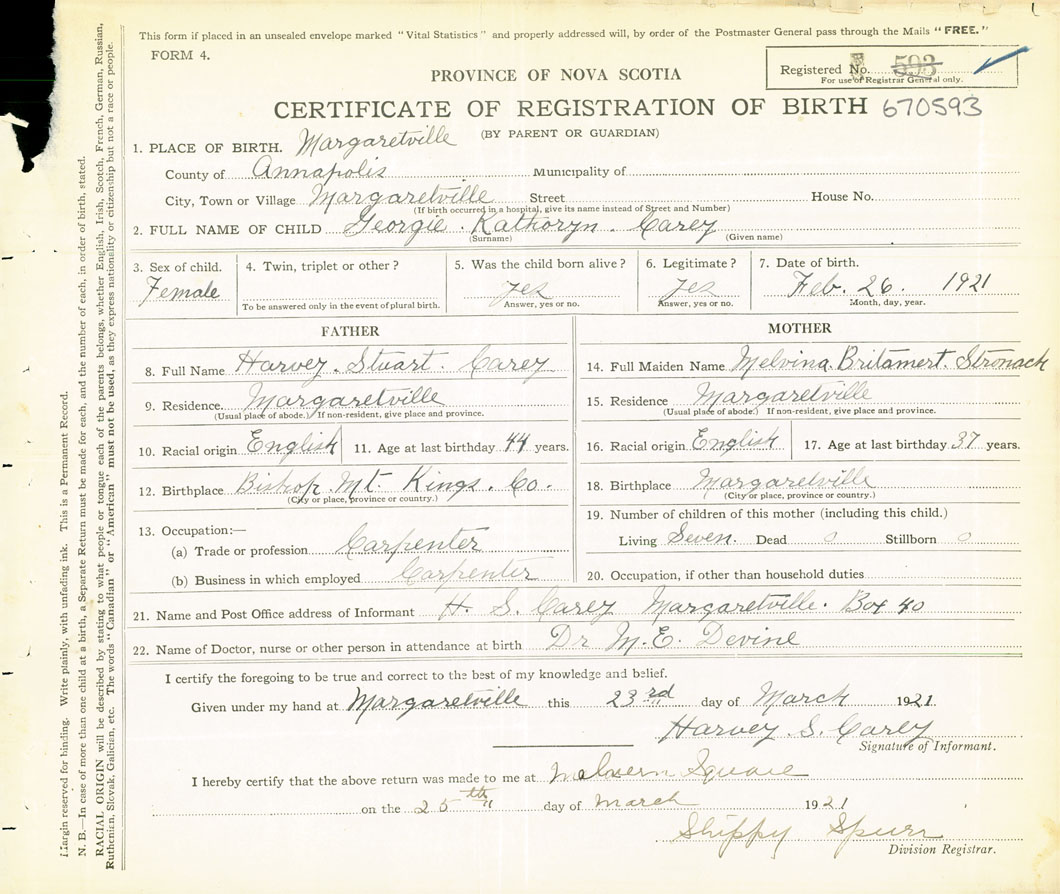 This form if placed in an unsealed envelope marked "Vital Statistics" and properly addressed will, by order of the Postmaster General pass through the Mails "FREE."
FORM 4.
Registered No. 593
For use of Registrar General only.
PROVINCE OF NOVA SCOTIA
CERTIFICATE OF REGISTRATION OF BIRTH 670593
(BY PARENT OR GUARDIAN)
1. PLACE OF BIRTH. Margaretville
County of Annapolis Municipality of
City, Town or Village Margaretville Street House No.
(If birth occurred in a hospital, give its name instead of Street and Number)
2. FULL NAME OF CHILD Georgie Kathoryn Carey
(Surname) (Given name)
3. Sex of child. 4. Twin, triplet or other? 5. Was the child born alive? 6. Legitimate? 7. Date of birth.
Female yes yes Feb. 26. 1921
To be answered only in the event of plural birth. Answer, yes or no. Answer, yes or no. Month, day, year.
FATHER
8. Full Name Harvey Stuart Carey
9. Residence. Margaretville
(Usual place of abode.) If non-resident, give place and province.
10. Racial origin English 11. Age at last birthday 44 years.
12. Birthplace Bishop Mt. Kings. Co.
(City or place, province or country.)
13. Occupation:—
(a) Trade or profession Carpenter
(b) Business in which employed Carpenter
MOTHER
14. Full Maiden Name Melvina Britamert Stronach
15. Residence. Margaretville
(Usual place of abode.) If non-resident, give place and province.
16. Racial origin English 17. Age at last birthday 37 years.
18. Birthplace Margaretville
(City or place, province or country.)
19. Number of children of this mother (including this child.)
Living Seven. Dead 0 Stillborn 0
20. Occupation, if other than household duties
21. Name and Post Office address of Informant H. S. Carey Margaretville. Box 40
22. Name of Doctor, nurse or other person in attendance at birth Dr M. E. Devine
I certify the foregoing to be true and correct to the best of my knowledge and belief.
Given under my hand at Margaretville this 23rd day of March 1921.
Harvey S. Carey
Signature of Informant.
I hereby certify that the above return was made to me at Melvern Square
on the 25th day of March 1921
Shippy Spurr
Division Registrar.
Margin reserved for binding. Write plainly, with unfading ink. This is a Permanent Record.
N. B.—In case of more than one child at a birth, a Separate Return must be made for each, and the number of each, in order of birth, stated.
RACIAL ORIGIN will be described by stating to what people or tongue each of the parents belongs, whether English, Irish, Scotch, French, German, Russian,
Ruthenian, Slovak, Galician, etc. The words "Canadian" or "American" must not be used, as they express nationality or citizenship but not a race or people.